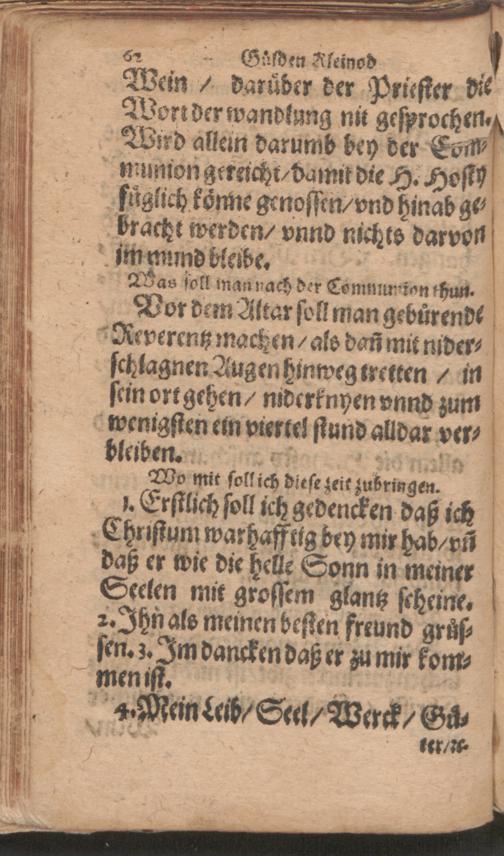 62 Gülden Kleinod
Wein / darüber der Priester die
Wort der wandlung nit gesprochen.
Wird allein darumb bey der Com-
munion gereicht/damit die H. Hosty
füglich könne genossen/vnd hinab ge-
bracht werden/ vnnd nichts darvon
im mund bleibe.
Was soll man nach der Communion thun.
Vor dem Altar soll man gebürende
Reverentz machen / als dañ mit nider-
schlagnen Augen hinweg tretten / in
sein ort gehen / niderknyen vnnd zum
wenigsten ein viertel stund alldar ver-
bleiben.
Wo mit soll ich diese zeit zubringen.
1. Erstlich soll ich gedencken daß ich
Christum warhafftig bey mir hab/vñ
daß er wie die helle Sonn in meiner
Seelen mit grossem glantz scheine.
2. Ihn als meinen besten freund grüs-
sen. 3. Im dancken daß er zu mir kom-
men ist.
4. Mein Leib/ Seel/ Werck/ Gü-
ter/ꝛc.